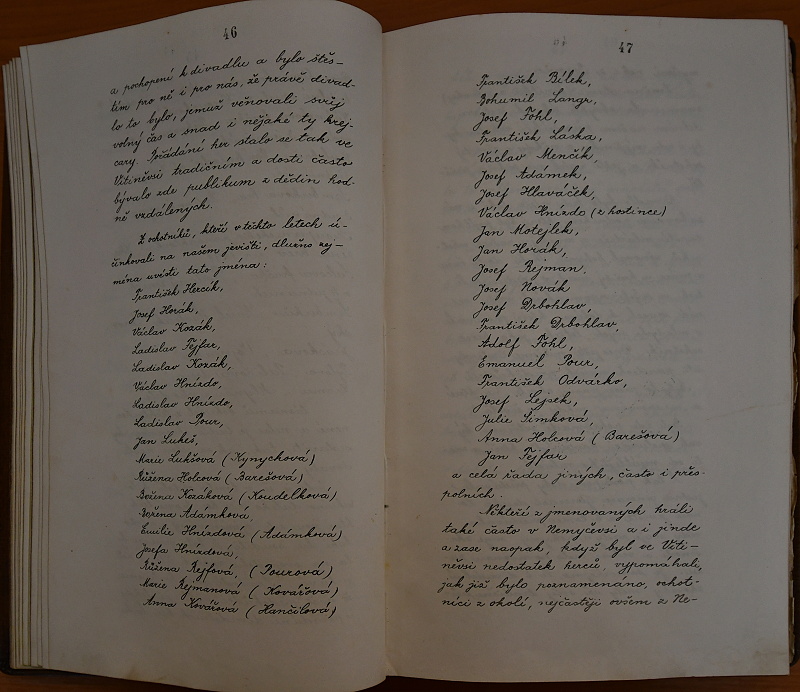 46
a pochopení k divadlu a bylo štěs-
tím pro ně i pro nás, že právě divad-
lo to bylo, jemuž věnovali svůj
volný čas a snad i nějaké ty krej-
cary. Pořádání her stalo se tak ve
Vitiněvsi tradičním a dosti často
bývalo zde publikum z dědin hod-
ně vzdálených.
Z ochotníků, kteří v těchto letech ú-
činkovali na našem jevišti, dlužno zej-
ména uvésti tato jména:
František Hercík,
Josef Horák,
Václav Kozák,
Ladislav Fejfar,
Ladislav Kozák,
Václav Hnízdo,
Ladislav Hnízdo,
Ladislav Pour,
Jan Lukeš,
Marie Lukšová (Kynychová)
Růžena Holcová (Barešová)
Božena Kozáková (Koudelková)
Božena Adámková
Emilie Hnízdová (Adámková)
Josefa Hnízdová,
Růžena Rejfová, (Pourová)
Marie Rejmanová (Kovářová)
Anna Kovářová (Hančilová)
47
František Bílek,
Bohumil Langr,
Josef Föhl,
František Láska,
Václav Menčík,
Josef Adámek,
Josef Hlaváček,
Václav Hnízdo (z hostince)
Jan Motejlek,
Jan Horák,
Josef Rejman.
Josef Novák
Josef Drbohlav,
František Drbohlav,
Adolf Föhl,
Emanuel Pour,
František Odvárko,
Josef Lejsek,
Julie Šimková,
Anna Holcová (Barešová)
Jan Fejfar
a celá řada jiných, často i přes-
polních.
Někteří z jmenovaných hráli
také často v Nemyčevsi a i jinde
a zase naopak, když byl ve Viti-
něvsi nedostatek herců, vypomáhali,
jak již bylo poznamenáno, ochot-
níci z okolí, nejčastěji ovšem z Ne-